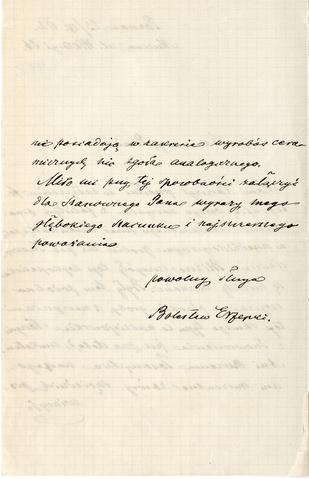 nie posiadają w zakresie wyrobów cera-
micznych nic zgoła analogicznego.
Miło mi przy tej sposobności załączyć
dla Szanownego Pana wyrazy mego
głębokiego szacunku i najszczerszego
poważania
powolny sługa
Bolesław Erzepki.